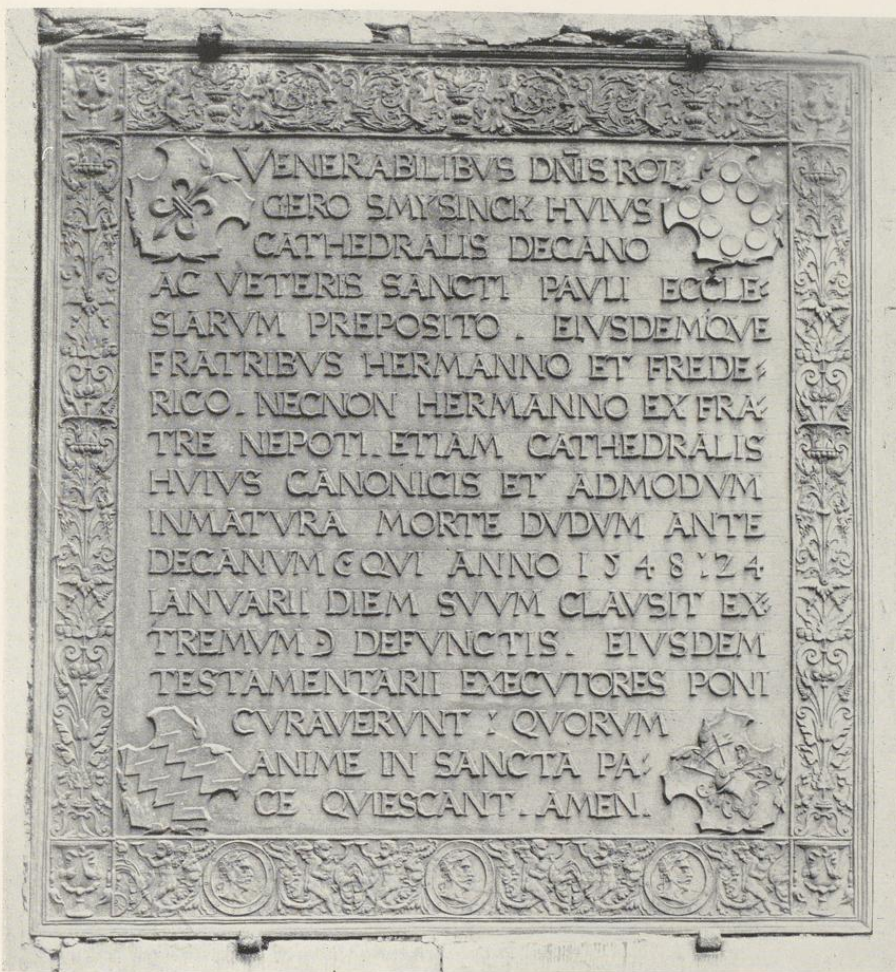 VENERABILIBVS DN̄IS ROT⸗
GERO SMYSINCK HVIVS
CATHEDRALIS DECANO
AC VETERIS SANCTI PAVLI ECCLE⸗
SIARVM PREPOSITO . EIVSDEMQVE
FRATRIBVS HERMANNO ET FREDE⸗
RICO . NECNON HERMANNO EX FRA⸗
TRE NEPOTI . ETIAM CATHEDRALIS
HVIVS CANONICIS ET ADMODVM
INMATVRA MORTE DVDVM ANTE
DECANVM ( QVI ANNO 1548 : 24
IANVARII DIEM SVVM CLAVSIT EX⸗
TREMVM ) DEFVNCTIS . EIVSDEM
TESTAMENTARII EXECVTORES PONI
CVRAVERVNT : QVORVM
ANIME IN SANCTA PA⸗
CE QVIESCANT . AMEN .